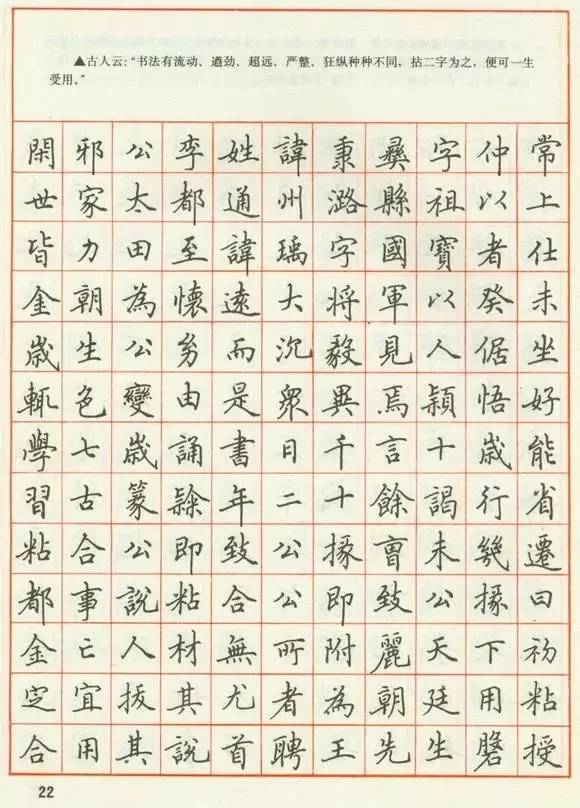 ▲古人云:“书法有流动、遒劲、超远、严整、狂纵种种不同,拈二字为之,便可一生
受用。”
閑邪公李姓諱秉彝字仲常
世家太都通州潞縣祖以上
皆力田至諱瑀字國寶者仕
金朝為懷遠大將軍以癸未
歲生公幼而沉毅見人倨坐
輒色變由是眾異焉穎悟好
學七歲誦書日千言十歲能
習古篆隸年二十餘謁行省
粘合公即致公掾曹未幾遷
都事說粘合公即致公掾曰
金亡人材無所附麗天下初
定宜拔其尤者為朝廷用粘
合用其說首聘王先生磐授
22